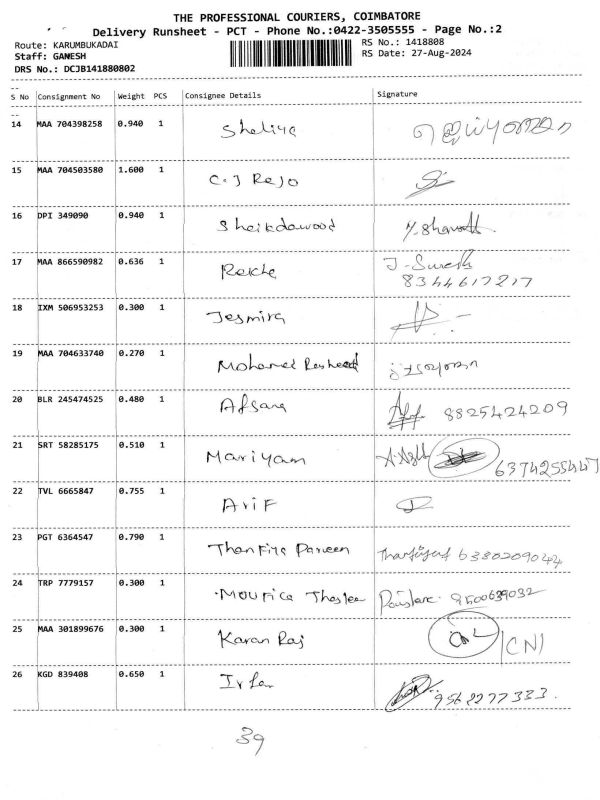 THE PROFESSIONAL COURIERS, COIMBATORE
Delivery Runsheet - PCT - Phone No.:0422-3505555 - Page No.:2
Route: KARUMBUKADAI RS No.: 1418808
Staff: GANESH RS Date: 27-Aug-2024
DRS No.: DCJB141880802
S No Consignment No Weight PCS Consignee Details Signature
14 MAA 704398258 0.940 1 Sheliya
15 MAA 704503580 1.600 1 C.J Rejo
16 DPI 349090 0.940 1 Sheikdawood
17 MAA 866590982 0.636 1 Rekha J-Suresh
8344617217
18 IXM 506953253 0.300 1 Jesmira
19 MAA 704633740 0.270 1 Mohamed Rasheed
20 BLR 245474525 0.480 1 Afsana 8825424209
21 SRT 58285175 0.510 1 Mariyam 6374255447
22 TVL 6665847 0.755 1 Arif
23 PGT 6364547 0.790 1 Thanfiya Parveen 6380209044
24 TRP 7779157 0.300 1 9500639032
25 MAA 301899676 0.300 1 Karan Raj
26 KGD 839408 0.650 1 Irfan 9562277333
39